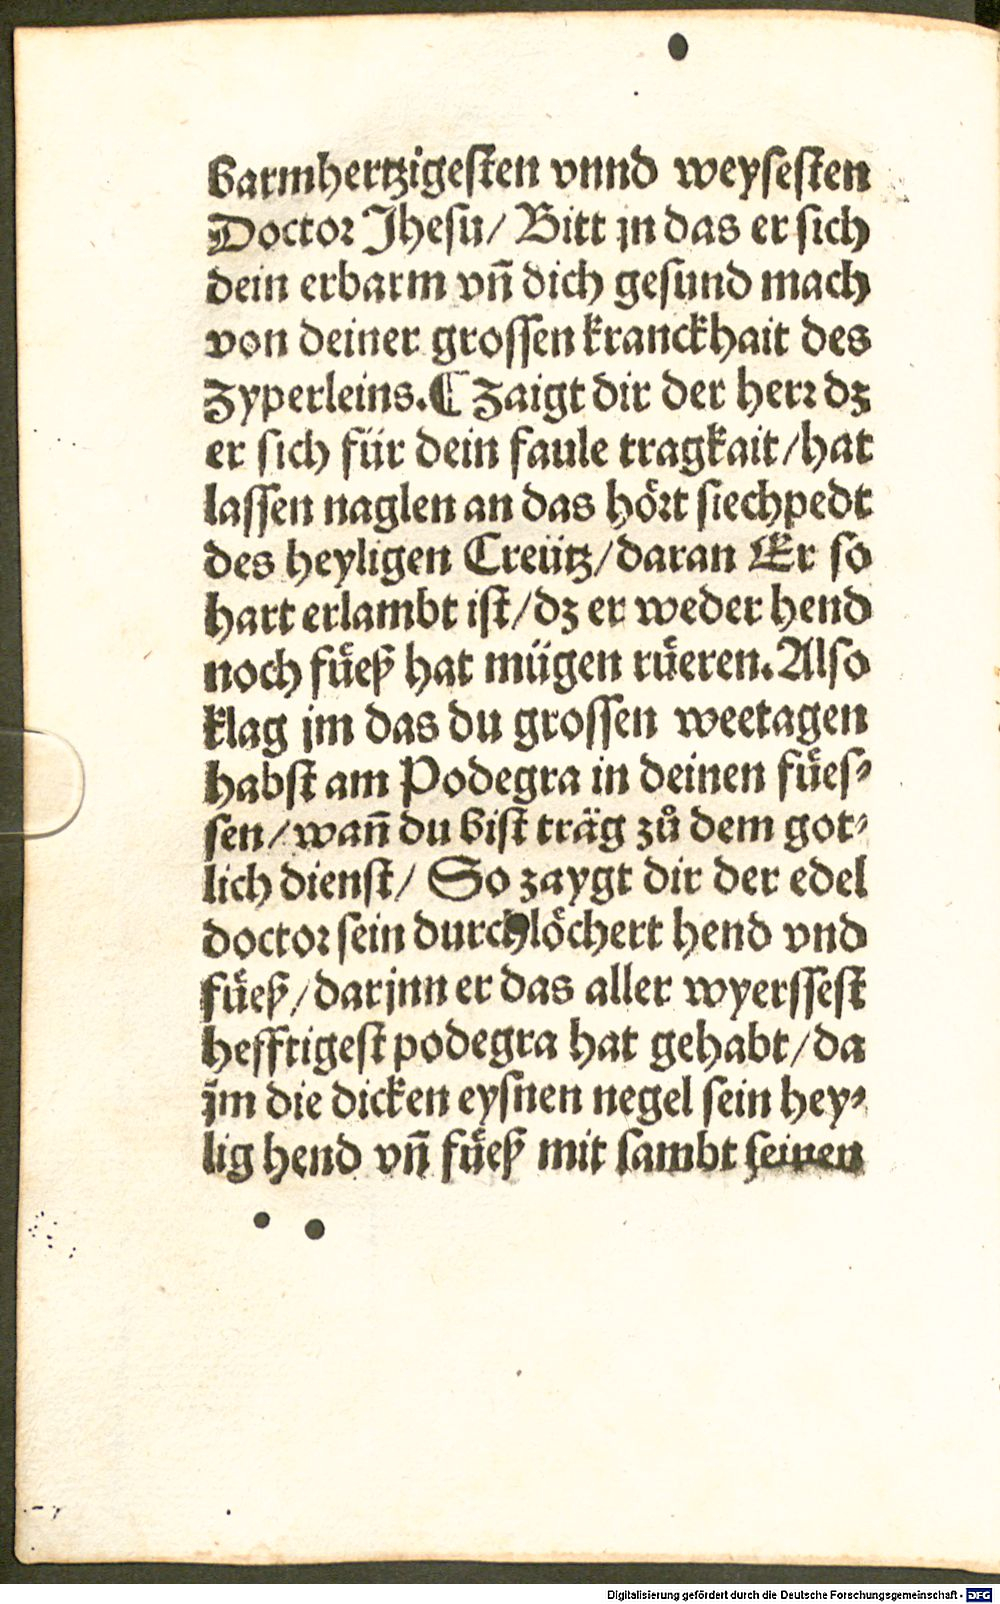 barmhertzigesten vnnd weysesten
Doctor Jhesu/ Bitt jn das er sich
dein erbarm vn̄ dich gesund mach
von deiner grossen kranckhait des
Zyperleins. ¶ Zaigt dir der herr dz
er sich für dein faule tragkait/ hat
lassen naglen an das hört siechpedt
des heyligen Creütz/ daran Er so
hart erlambt ist/ dz er weder hend
noch fuͤeß hat mügen ruͤeren. Also
klag jm das du grossen weetagen
habst am Podegra in deinen fuͤes⸗
sen/ wan̄ du bist träg zů dem got⸗
lich dienst/ So zaygt dir der edel
doctor sein durchlöchert hend vnd
fuͤeß/ darjnn er das aller wyerssest
hefftigest podegra hat gehabt/ da
jm die dicken eysnen negel sein hey⸗
lig hend vn̄ fuͤeß mit sambt seinen
Digitalisierung gefördert durch die Deutsche Forschungsgemeinschaft - DFG